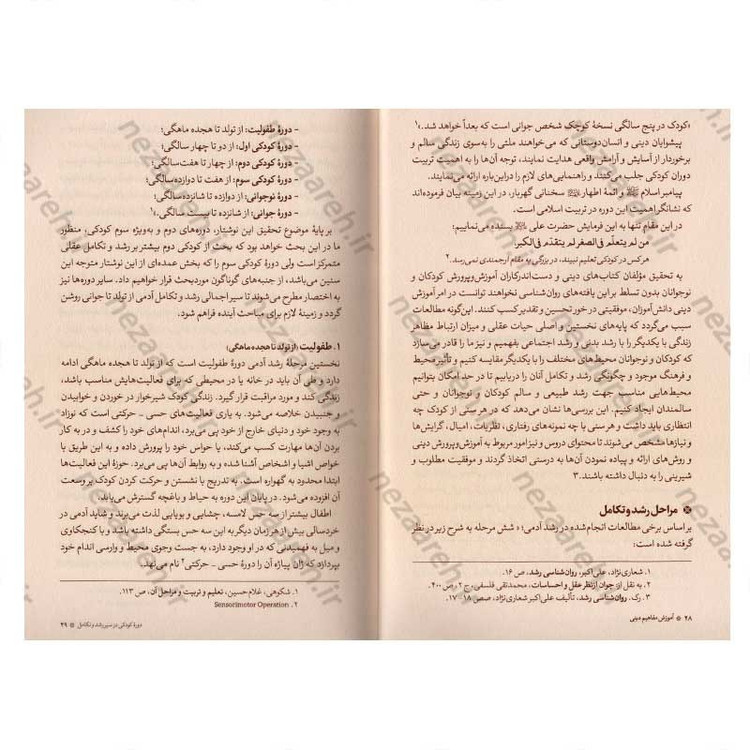 «کودک در پنج سالگی نسخهٔ کوچک شخص جوانی است که بعداً خواهد شد.»۱
پیشوایان دینی و انسان‌دوستانی که می‌خواهند ملتی را به‌سوی زندگی سالم و
برخوردار از آسایش و آرامش واقعی هدایت نمایند، توجه آن‌ها را به اهمیت تربیت
دوران کودکی جلب می‌کنند و راهنمایی‌های لازم را دراین‌باره ارائه می‌نمایند.
پیامبر اسلام ﷺ و ائمهٔ اطهار سخنانی گهربار، در این زمینه بیان فرموده‌اند
که نشانگر اهمیت این دوره در تربیت اسلامی است.
در این مقام تنها به این فرمایش حضرت علی بسنده می‌نماییم:
من لم یتعلّم فی الصغر لم یتقدّم فی الکبر
هرکس در کودکی تعلیم نبیند، در بزرگی به مقام ارجمندی نمی‌رسد.۲
به تحقیق مؤلفان کتاب‌های دینی و دست‌اندرکاران آموزش‌وپرورش کودکان و
نوجوانان بدون تسلط بر این یافته‌های روان‌شناسی نخواهند توانست در امر آموزش
دینی دانش‌آموزان، موفقیتی در خور تحسین و تقدیر کسب کنند. این‌گونه مطالعات
سبب می‌گردد که پایه‌های نخستین و اصلی حیات عقلی و میزان ارتباط مظاهر
زندگی با یکدیگر را با رشد بدنی و رشد اجتماعی بفهمیم و نیز ما را قادر می‌سازد
که کودکان و نوجوانان محیط‌های مختلف را با یکدیگر مقایسه کنیم و تأثیر محیط
و فرهنگ موجود و چگونگی رشد و تکامل آنان را دریابیم تا در حد امکان بتوانیم
محیط‌هایی مناسب جهت رشد طبیعی و سالم کودکان و نوجوانان و حتی
سالمندان ایجاد کنیم. این بررسی‌ها نشان می‌دهد که در هر سنی از کودک چه
انتظاری باید داشت و هر سنی با چه نمونه‌های رفتاری، نظریات، امیال، گرایش‌ها
و نیازها مشخص می‌شوند تا محتوای دروس و نیز امور مربوط به آموزش‌وپرورش دینی
و روش‌های ارائه و پیاده نمودن آن‌ها به درستی اتخاذ گردند و موفقیت مطلوب و
شیرینی را به دنبال داشته باشند.۳
مراحل رشد و تکامل
بر اساس برخی مطالعات انجام‌شده در رشد آدمی؛ شش مرحله به شرح زیر در نظر
گرفته شده است:
۱. شعاری‌نژاد، علی‌اکبر، روان‌شناسی رشد، ص ۱۶.
۲. به نقل از: جوان از نظر عقل و احساسات، محمدتقی فلسفی، ج ۲، ص ۴۰۰.
۳. رک. روان‌شناسی رشد، تألیف علی‌اکبر شعاری‌نژاد، صص ۱۸ - ۱۷.
۴۸ آموزش مفاهیم دینی
- دورهٔ طفولیت: از تولد تا هجده ماهگی؛
- دورهٔ کودکی اول: از دو تا چهار سالگی؛
- دورهٔ کودکی دوم: از چهار تا هفت‌سالگی؛
- دورهٔ کودکی سوم: از هفت تا دوازده‌سالگی؛
- دورهٔ نوجوانی: از دوازده تا شانزده‌سالگی؛
- دورهٔ جوانی: از شانزده تا بیست سالگی.۱
بر پایهٔ موضوع تحقیق این نوشتار، دوره‌های دوم و به‌ویژه سوم کودکی، منظور
ما در این بحث خواهد بود که بحث از کودکی دوم بیشتر بر رشد و تکامل عقلی
متمرکز است ولی دورهٔ کودکی سوم را که بخش عمده‌ای از این نوشتار متوجه این
سنین می‌باشد، از جنبه‌های گوناگون مورد بحث قرار خواهیم داد. سایر دوره‌ها نیز
به اختصار مطرح می‌شوند تا سیر اجمالی رشد و تکامل آدمی از تولد تا جوانی روشن
گردد و زمینهٔ لازم برای مباحث آینده فراهم شود.
۱. طفولیت (از تولد تا هجده ماهگی)
نخستین مرحلهٔ رشد آدمی دورهٔ طفولیت است که از تولد تا هجده ماهگی ادامه
دارد و طی آن باید در خانه یا در محیطی که برای فعالیت‌هایش مناسب باشد،
زندگی کند و مورد مراقبت قرار گیرد. زندگی کودک شیرخوار در خوردن و خوابیدن
و جنبیدن خلاصه می‌شود. به یاری فعالیت‌های حسی - حرکتی است که نوزاد
به وجود خود و دنیای خارج از خود پی می‌برد، اندام‌های خود را کشف و در به کار
بردن آن‌ها مهارت کسب می‌کند، یا حواس خود را پرورش داده و به این طریق با
خواص اشیا و اشخاص آشنا شده و به روابط آن‌ها پی می‌برد. حوزهٔ این فعالیت‌ها
ابتدا محدود به گهواره است، به تدریج با نشستن و حرکت کردن کودک بر وسعت
آن افزوده می‌شود. در پایان این دوره به حیاط و باغچه گسترش می‌یابد.
اطفال بیشتر از سه حس لامسه، چشایی و بویایی لذت می‌برند و شاید آدمی در
خردسالی بیش از هر زمان دیگر به این سه حس بستگی داشته باشد و با کنجکاوی
و میل به فهمیدنی که در او وجود دارد، به جست وجوی محیط و وارسی اندام خود
بپردازد که ژان پیاژه آن را دورهٔ حسی - حرکتی۲ نام می‌نهد.
۱. شکوهی، غلام حسین، تعلیم و تربیت و مراحل آن، ص ۱۱۳.
۲. Sensorimotor Operation
دورهٔ کودکی در سیر رشد و تکامل ۴۹
nezaareh.ir